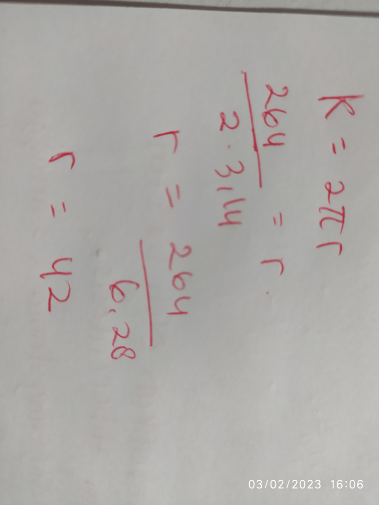 K = 2πr
264 / 2 · 3,14 = r
r = 264 / 6,28
r = 42
03/02/2023 16:06